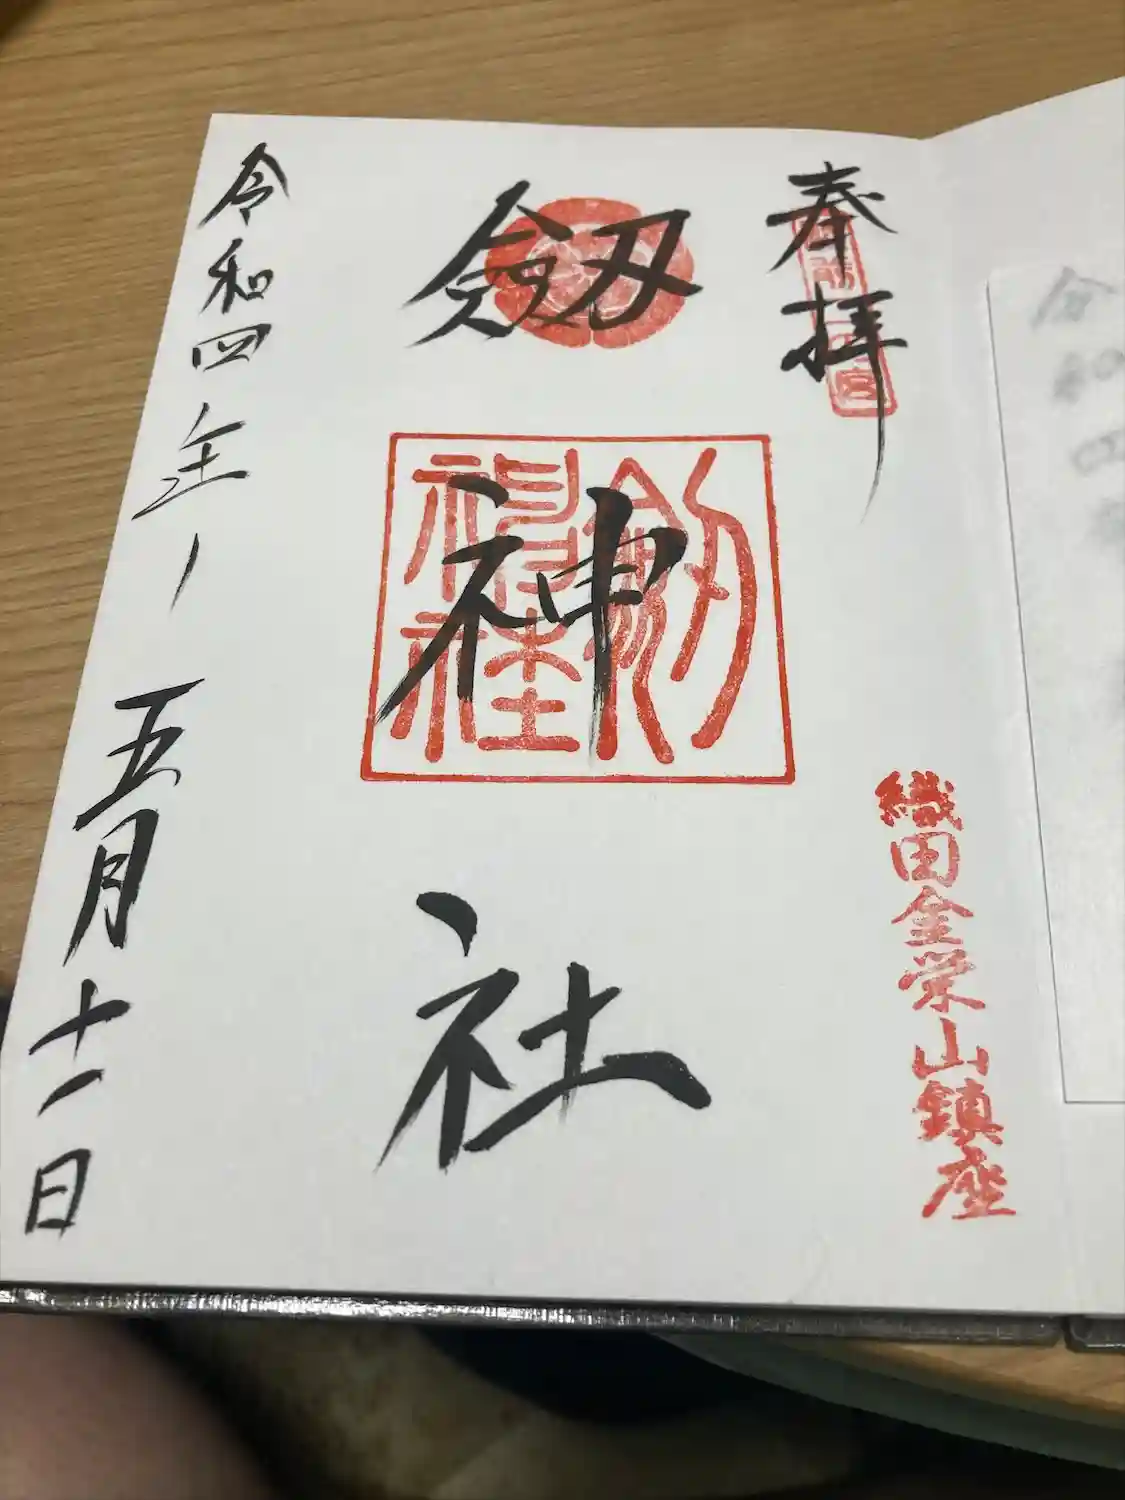 奉拝
織田金栄山鎮座
劔神社
劔神社
令和四年 五月十一日